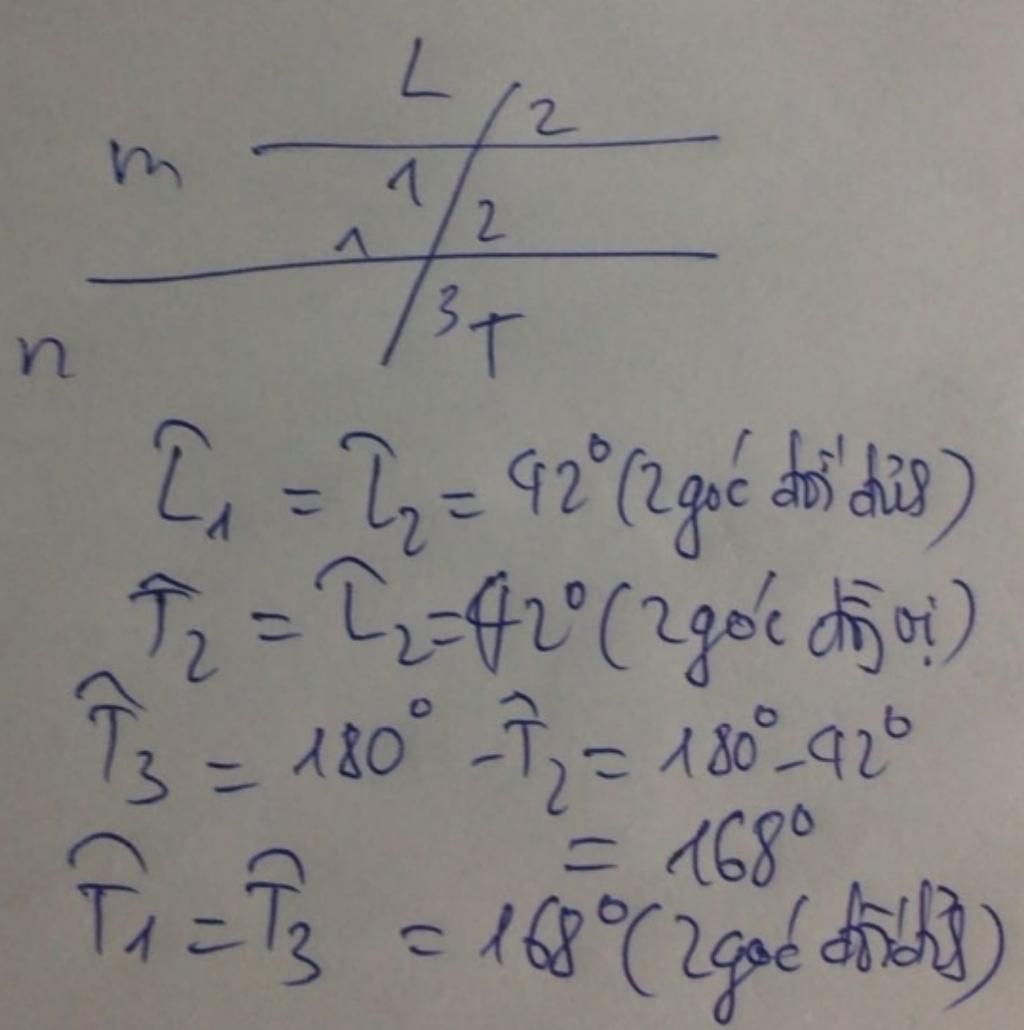 L
2
m
1
2
1
3 T
n
L̂₁ = L̂₂ = 42° (2 góc đối đỉnh)
T̂₂ = L̂₂ = 42° (2 góc đồng vị)
T̂₃ = 180° - T̂₂ = 180° - 42°
= 168°
T̂₁ = T̂₃ = 168° (2 góc đối đỉnh)